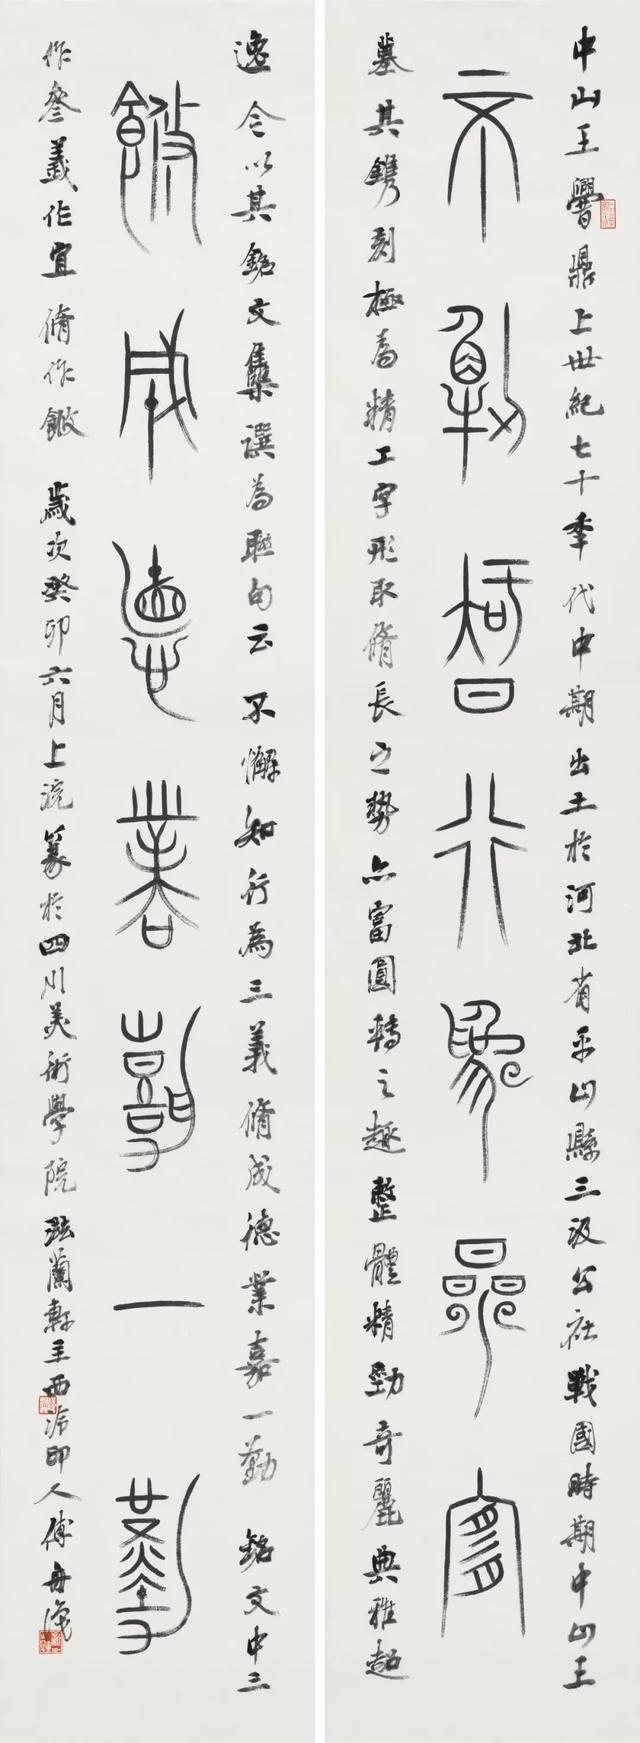 中山王鼎上世紀七十秊代中期出土於河北省平山縣三汲公社戰國時期中山王
不懈智行為參宜
墓其鐫刻極為精工字形取脩長之勢亦富圓轉之趣整體精勁奇麗典雅超
逸今以其銘文集譔為聯句云不懈知行為三義脩成德業嘉一勤 銘文中三
脩成德業嘉一勤
作參義作宜脩作 歲次癸卯六月上浣篆於四川美術學院 蘭軒主西泠印人傅舟